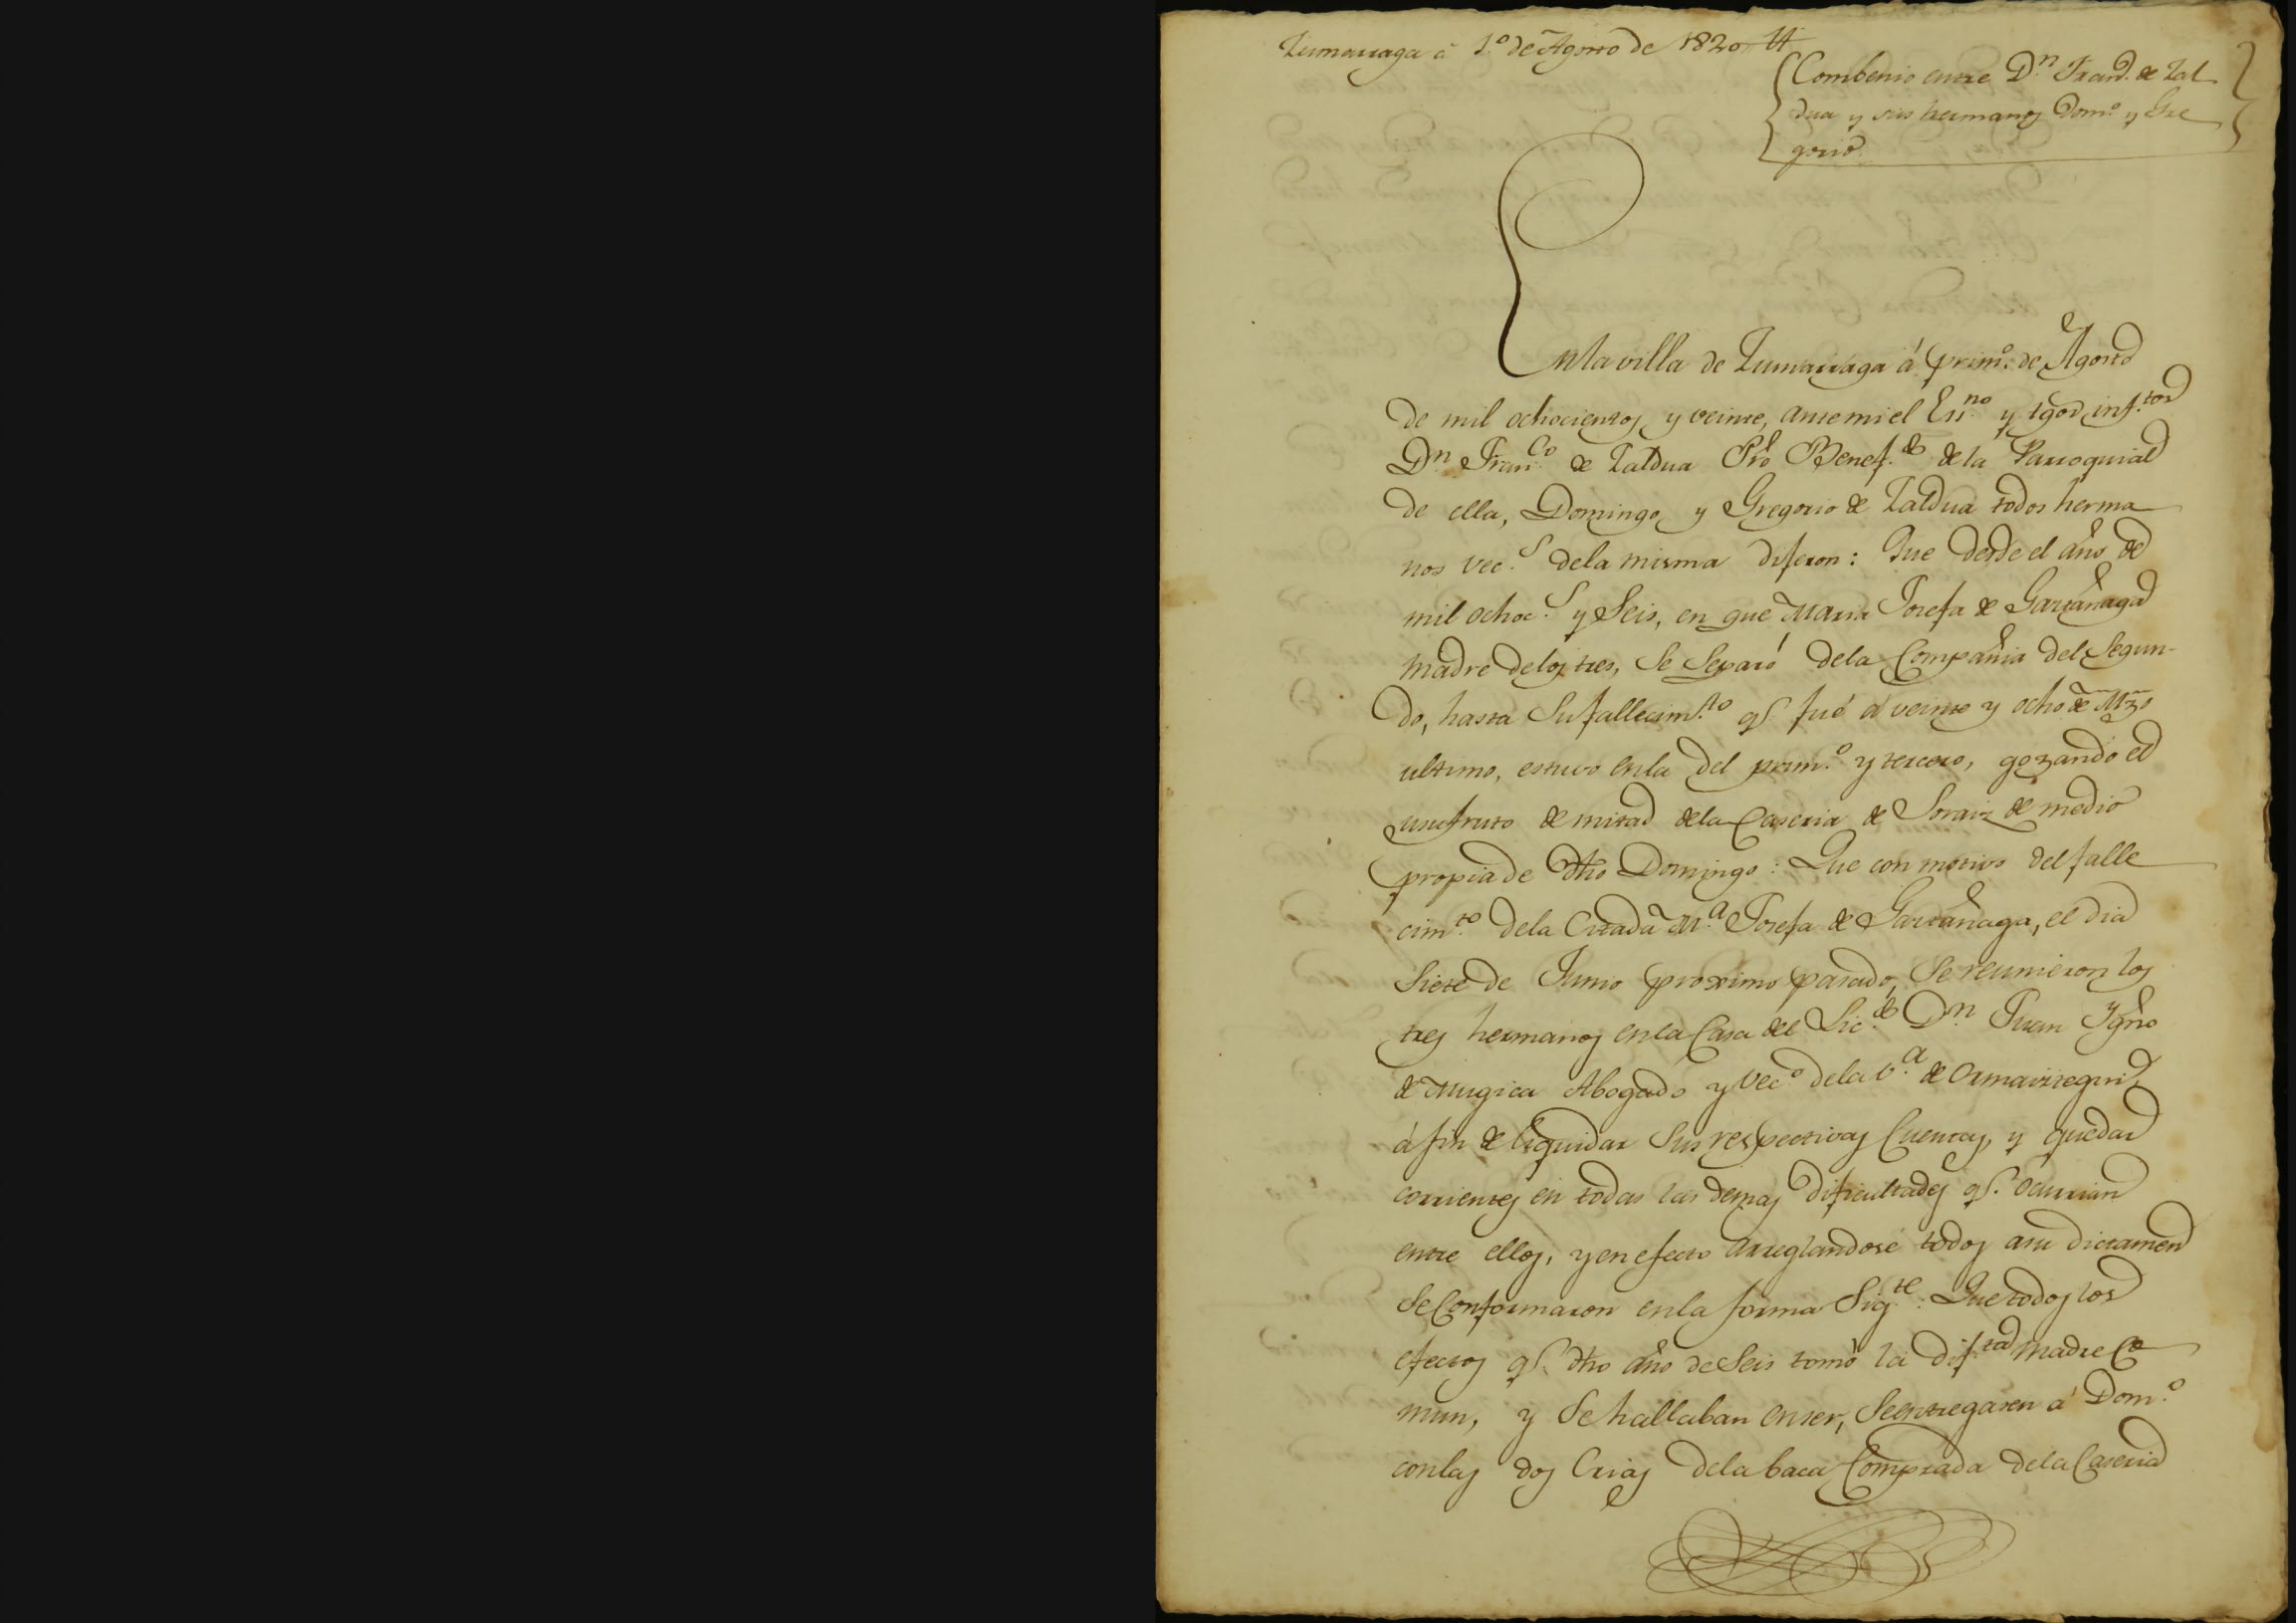 Zumarraga á 1.º de Agosto de 1820
Combenio entre D.n Fran.co de Zal
dua y sus hermanos Dom.º y Gre
gorio
En la villa de Zumarraga á prim.º de Agosto
de mil ochocientos y veinte, ante mi el Ess.no y tgos inf.tos
D.n Fran.co de Zaldua Pro Benef.do de la Parroquial
de ella, Domingo y Gregorio de Zaldua todos herma
nos vec.s de la misma dijeron: Que desde el año de
mil ochoc.s y Seis, en que Maria Josefa de Garrañaga
madre de los tres, se separó de la Compañia del Segun-
do, hasta su fallecim.to q.e fué á veinte y ocho de Mzo
ultimo, estuvo en la del prim.º y tercero, gozando el
usufruto de mitad de la Caseria de Soraiz de medio
propia de dho Domingo: Que con motivo del falle
cim.to de la Citada M.a Josefa de Garrañaga, el dia
Siete de Junio proximo pasado, se reunieron los
tres hermanos en la Casa del Lic.do D.n Juan Ygno
de Mugica Abogado y vec.º de la v.a de Ormaiztegui,
á fin de liquidar sus respectivas Cuentas, y quedar
corrientes en todas las demas dificultades q.e ocurrian
entre ellos, y en efecto arreglandose todos a su dictamen
se Conformaron en la forma Sig.te: Que todos los
efectos q.e dho año de Seis tomó la dif.ta madre Co
mun, y se hallaban en ser, se entregasen á Dom.º
con las dos Crias de la baca Comprada de la Caseria